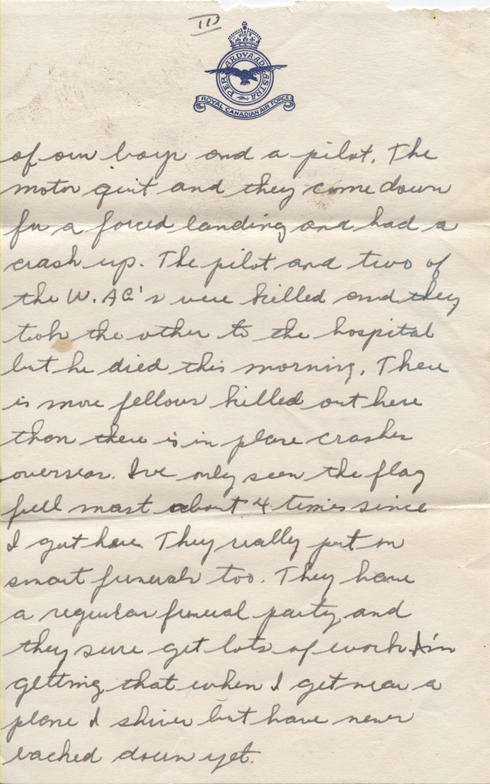 III
PER ARDUA AD ASTRA
ROYAL CANADIAN AIR FORCE
of our boys and a pilot. The
motor quit and they come down
for a forced landing and had a
crash up. The pilot and two of
the W.AG's were killed and they
took the other to the hospital
but he died this morning. There
is more fellows killed out here
than there is in plane crashes
overseas. I've only seen the flag
full mast about 4 times since
I got here. They really put on
smart funerals too. They have
a regular funeral party and
they sure get lots of work. I'm
getting that when I get near a
plane I shiver but have never
backed down yet.